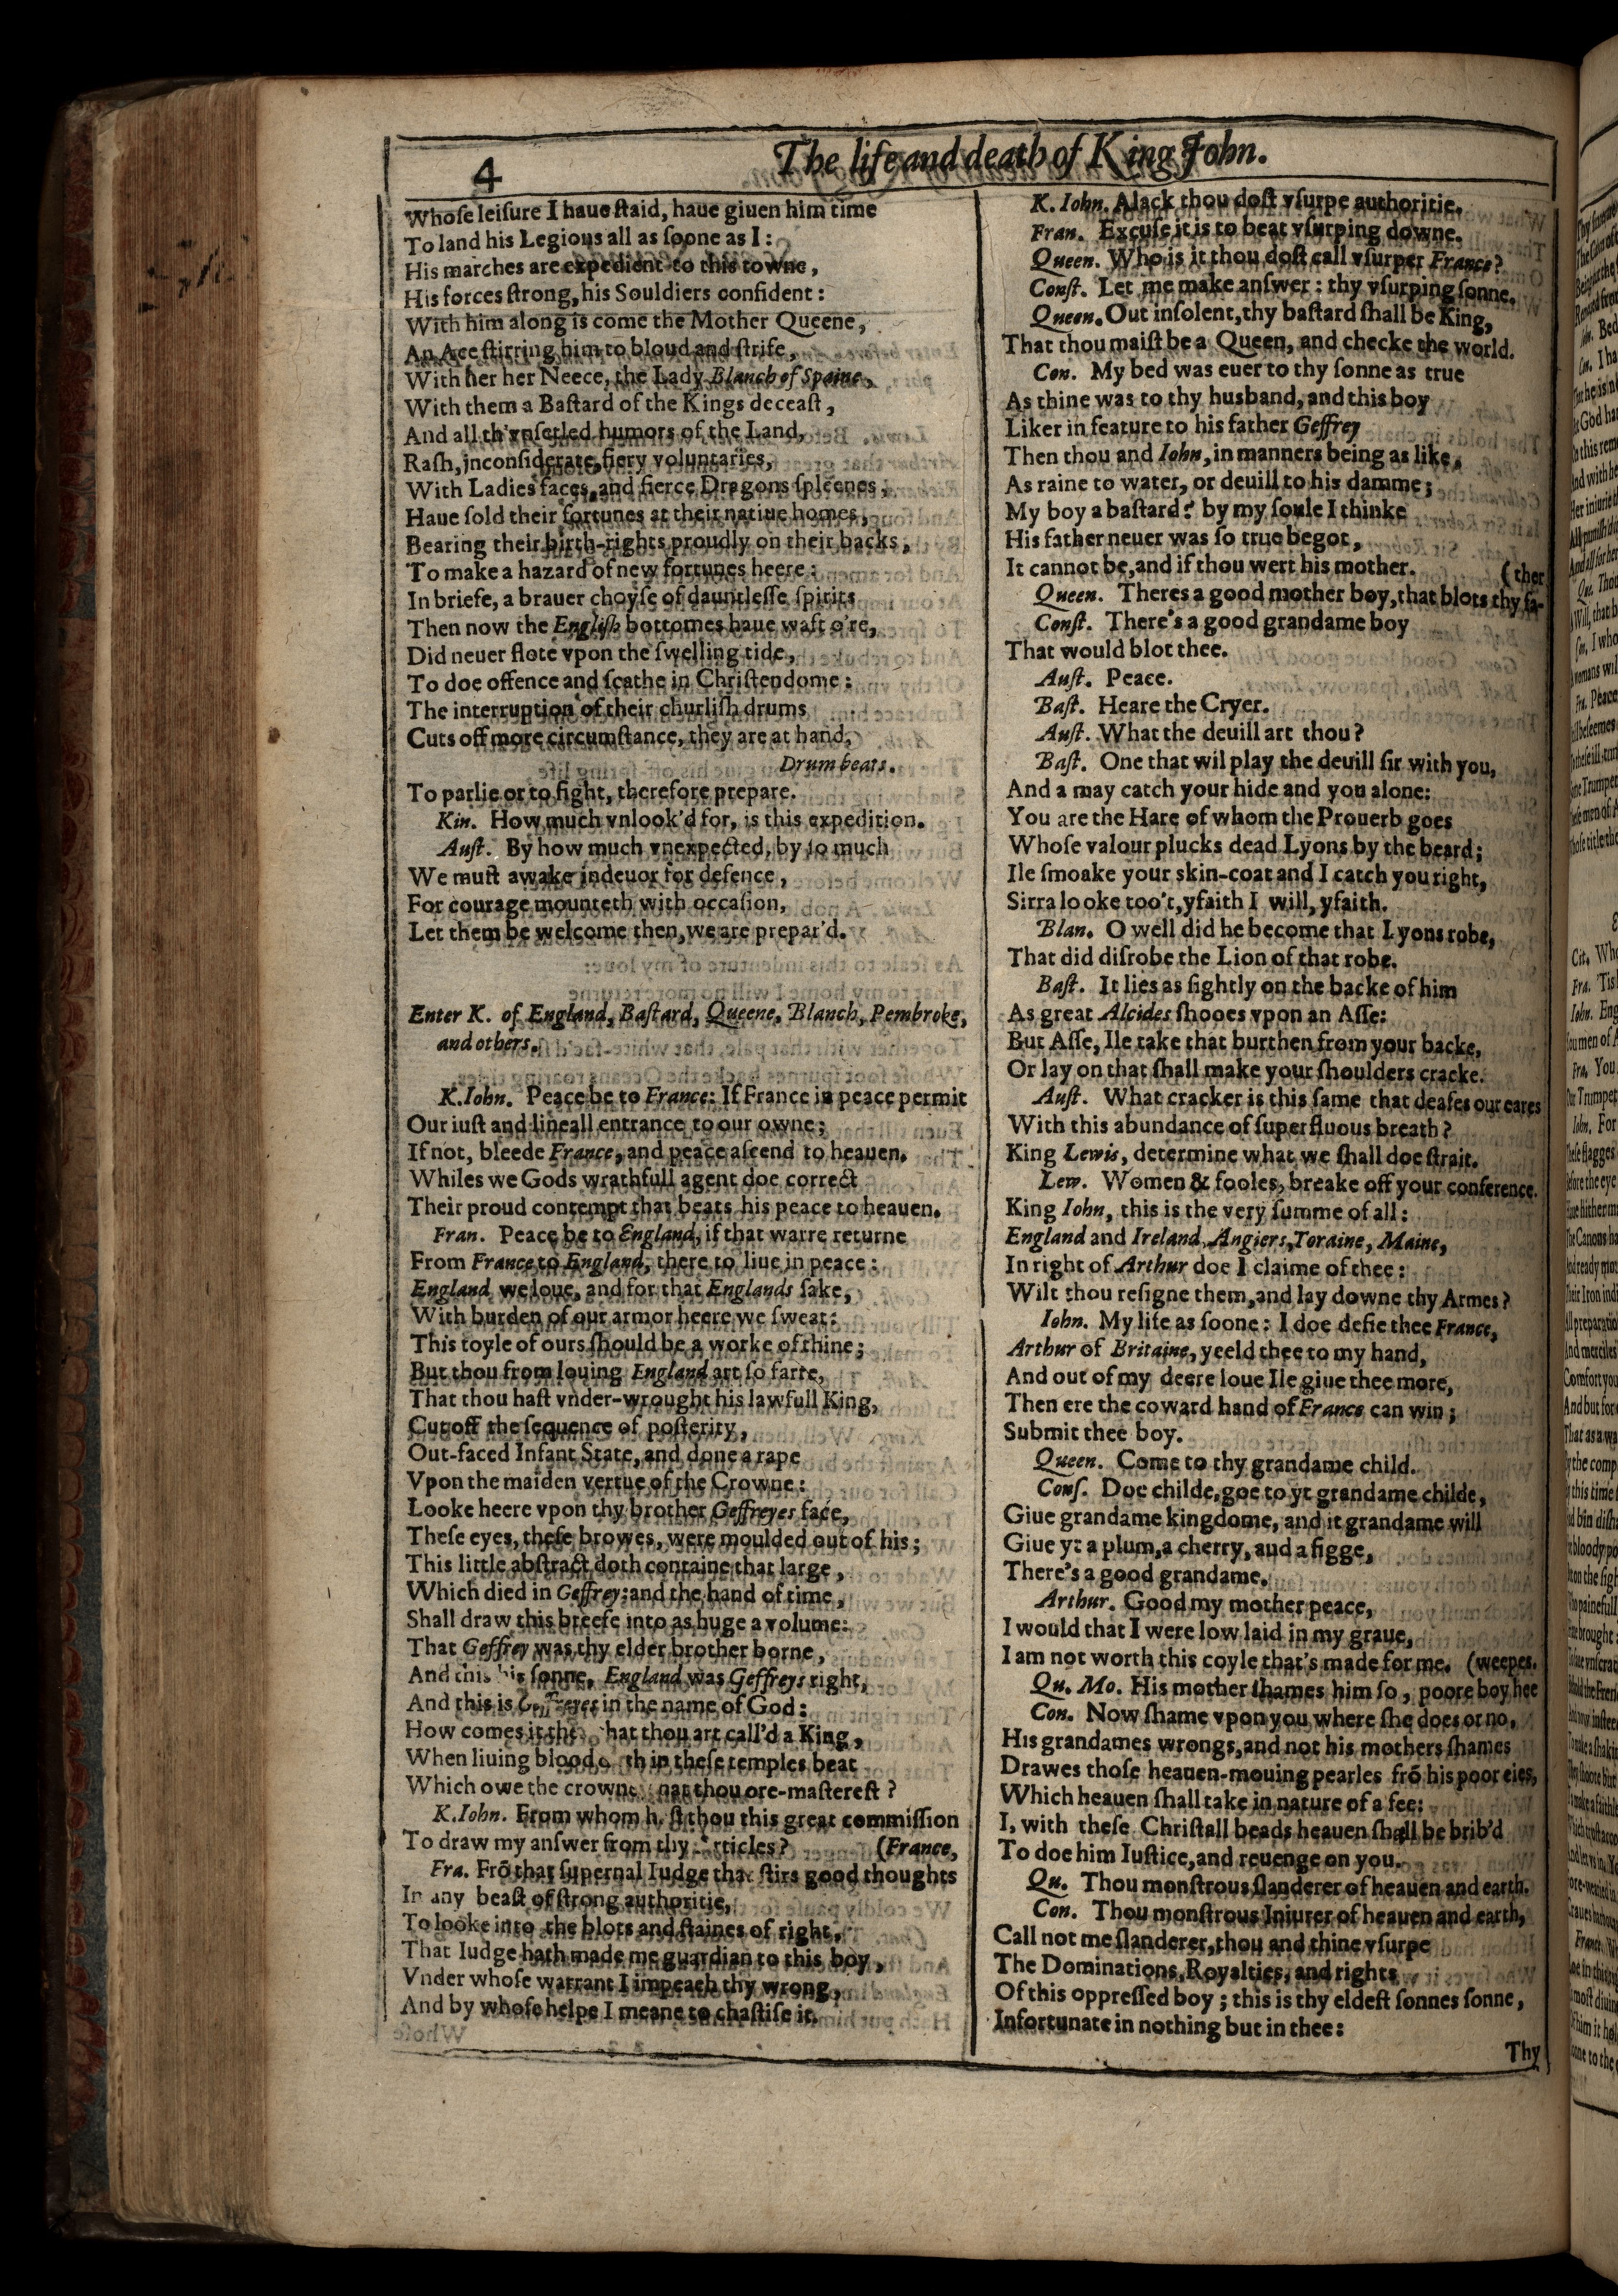 4
The life and death of King John.
Whoſe leiſure I haue ſtaid, haue giuen him time
To land his Legions all as ſoone as I:
His marches are expedient to this towne,
His forces ſtrong, his Souldiers confident:
With him along is come the Mother Queene,
An Ace ſtirring him to bloud and ſtrife,
With her her Neece, the Lady Blanch of Spaine,
With them a Baſtard of the Kings deceaſt,
And all th'vnſetled humors of the Land,
Raſh, inconſiderate, fiery voluntaries,
With Ladies faces, and fierce Dragons ſpleenes,
Haue ſold their fortunes at their natiue homes,
Bearing their birth-rights proudly on their backs,
To make a hazard of new fortunes heere:
In briefe, a brauer choyſe of dauntleſſe ſpirits
Then now the Engliſh bottomes haue waft o're,
Did neuer flote vpon the ſwelling tide,
To doe offence and ſcathe in Chriſtendome:
The interruption of their churliſh drums
Cuts off more circumſtance, they are at hand,
Drum beats.
To parlie or to fight, therefore prepare.
Kin. How much vnlook'd for, is this expedition.
Auſt. By how much vnexpected, by ſo much
We muſt awake indeuor for defence,
For courage mounteth with occaſion,
Let them be welcome then, we are prepar'd.
Enter K. of England, Baſtard, Queene, Blanch, Pembroke,
and others.
K.Iohn. Peace be to France: If France in peace permit
Our iuſt and lineall entrance to our owne;
If not, bleede France, and peace aſcend to heauen.
Whiles we Gods wrathfull agent doe correct
Their proud contempt that beats his peace to heauen.
Fran. Peace be to England, if that warre returne
From France to England, there to liue in peace:
England we loue, and for that Englands ſake,
With burden of our armor heere we ſweat:
This toyle of ours ſhould be a worke of thine;
But thou from louing England art ſo farre,
That thou haſt vnder-wrought his lawfull King,
Cut off the ſequence of poſterity,
Out-faced Infant State, and done a rape
Vpon the maiden vertue of the Crowne:
Looke heere vpon thy brother Geffreyes face,
Theſe eyes, theſe browes, were moulded out of his;
This little abſtract doth containe that large,
Which died in Geffrey: and the hand of time,
Shall draw this breefe into as huge a volume:
That Geffrey was thy elder brother borne,
And this his ſonne, England was Geffreys right,
And this is Geffreyes in the name of God:
How comes it hat thou art call'd a King,
When liuing blood th in theſe temples beat
Which owe the crowne thou ore-maſtereſt?
K.Iohn. From whom h ſt thou this great commiſſion
To draw my anſwer from thy rticles? (France,
Fra. Frõ that ſupernal Iudge that ſtirs good thoughts
In any beaſt of ſtrong authoritie,
To looke into the blots and ſtaines of right,
That Iudge hath made me guardian to this boy,
Vnder whoſe warrant I impeach thy wrong,
And by whoſe helpe I meane to chaſtiſe it.
K. Iohn. Alack thou doſt vſurpe authoritie.
Fran. Excuſe it is to beat vſurping downe.
Queen. Who is it thou doſt call vſurper France?
Conſt. Let me make anſwer: thy vſurping ſonne.
Queen. Out inſolent, thy baſtard ſhall be King,
That thou maiſt be a Queen, and checke the world.
Con. My bed was euer to thy ſonne as true
As thine was to thy husband, and this boy
Liker in feature to his father Geffrey
Then thou and Iohn, in manners being as like,
As raine to water, or deuill to his damme;
My boy a baſtard? by my ſoule I thinke
His father neuer was ſo true begot,
It cannot be, and if thou wert his mother. (ther
Queen. Theres a good mother boy, that blots thy fa-
Conſt. There's a good grandame boy
That would blot thee.
Auſt. Peace.
Baſt. Heare the Cryer.
Auſt. What the deuill art thou?
Baſt. One that wil play the deuill ſir with you,
And a may catch your hide and you alone:
You are the Hare of whom the Prouerb goes
Whoſe valour plucks dead Lyons by the beard;
Ile ſmoake your skin-coat and I catch you right,
Sirra looke too't, yfaith I will, yfaith.
Blan. O well did he become that Lyons robe,
That did diſrobe the Lion of that robe.
Baſt. It lies as ſightly on the backe of him
As great Alcides ſhooes vpon an Aſſe:
But Aſſe, Ile take that burthen from your backe,
Or lay on that ſhall make your ſhoulders cracke.
Auſt. What cracker is this ſame that deafes our eares
With this abundance of ſuperfluous breath?
King Lewis, determine what we ſhall doe ſtrait.
Lew. Women & fooles, breake off your conference.
King Iohn, this is the very ſumme of all:
England and Ireland, Angiers, Toraine, Maine,
In right of Arthur doe I claime of thee:
Wilt thou reſigne them, and lay downe thy Armes?
Iohn. My life as ſoone: I doe defie thee France,
Arthur of Britaine, yeeld thee to my hand,
And out of my deere loue Ile giue thee more,
Then ere the coward hand of France can win;
Submit thee boy.
Queen. Come to thy grandame child.
Conſ. Doe childe, goe to yt grandame childe,
Giue grandame kingdome, and it grandame will
Giue yt a plum, a cherry, aud a figge,
There's a good grandame.
Arthur. Good my mother peace,
I would that I were low laid in my graue,
I am not worth this coyle that's made for me. (weepes.
Qu. Mo. His mother ſhames him ſo, poore boy hee
Con. Now ſhame vpon you where ſhe does or no,
His grandames wrongs, and not his mothers ſhames
Drawes thoſe heauen-mouing pearles frõ his poor eies,
Which heauen ſhall take in nature of a fee:
I, with theſe Chriſtall beads heauen ſhall be brib'd
To doe him Iuſtice, and reuenge on you.
Qu. Thou monſtrous ſlanderer of heauen and earth.
Con. Thou monſtrous Iniurer of heauen and earth,
Call not me ſlanderer, thou and thine vſurpe
The Dominations, Royalties, and rights
Of this oppreſſed boy; this is thy eldeſt ſonnes ſonne,
Infortunate in nothing but in thee:
Thy